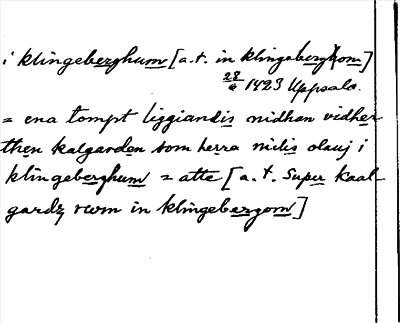 i klingeberghum [a.t. in klingeberghom]
28/6 1423 Uppsala.
= ena tompt liggiandis nidhan vidher
then kalgarden som herra nielis olauj i
klingeberghum = atte [a.t. super kaal-
gardz rwm in klingebergom]